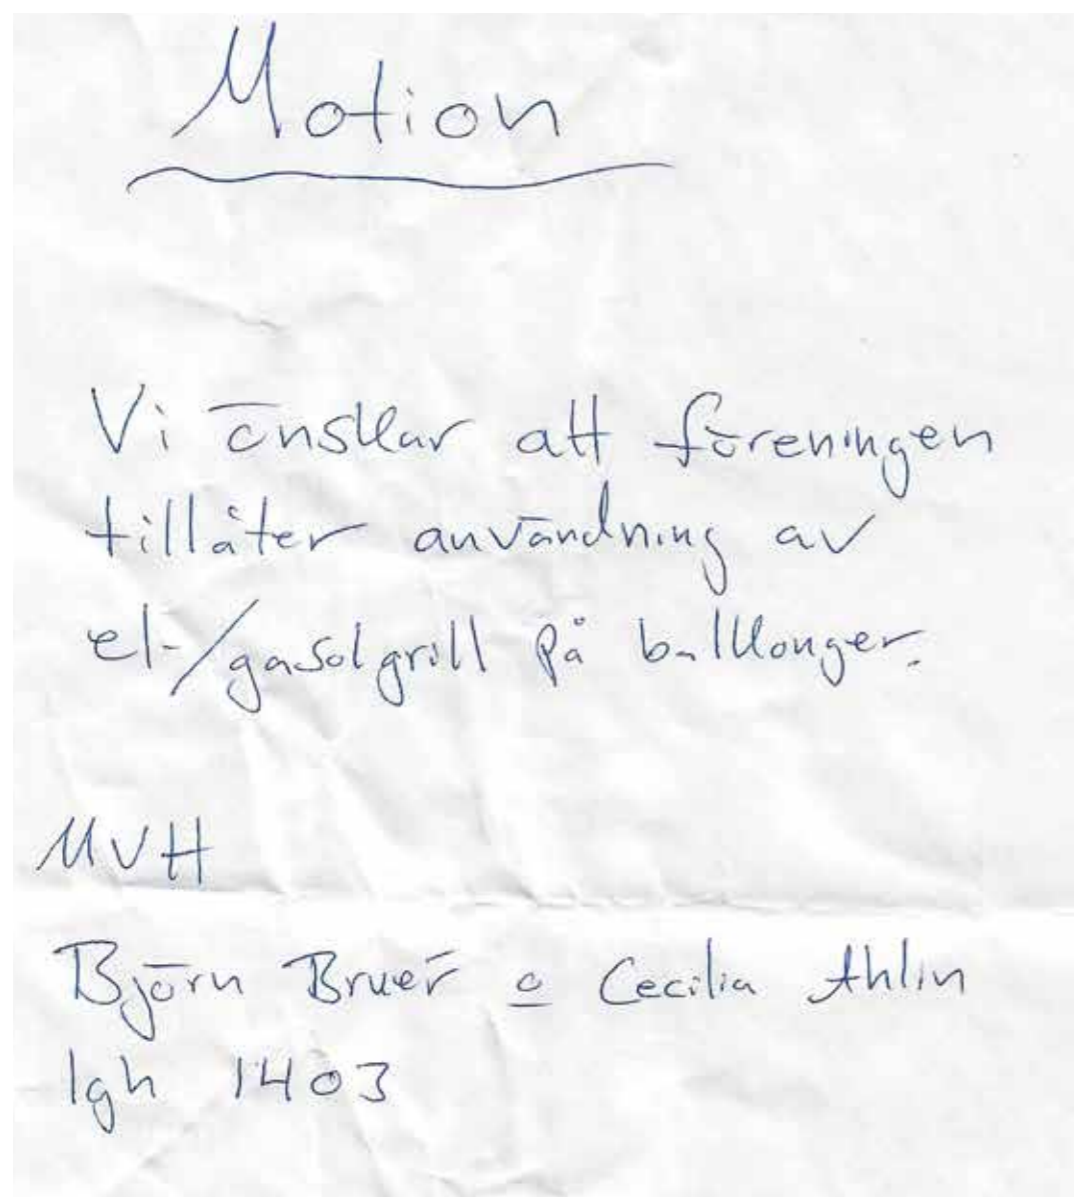 Motion
Vi önskar att föreningen
tillåter användning av
el-/gasolgrill på balkonger.
MVH
Björn Bruér o Cecilia Ahlin
lgh 1403